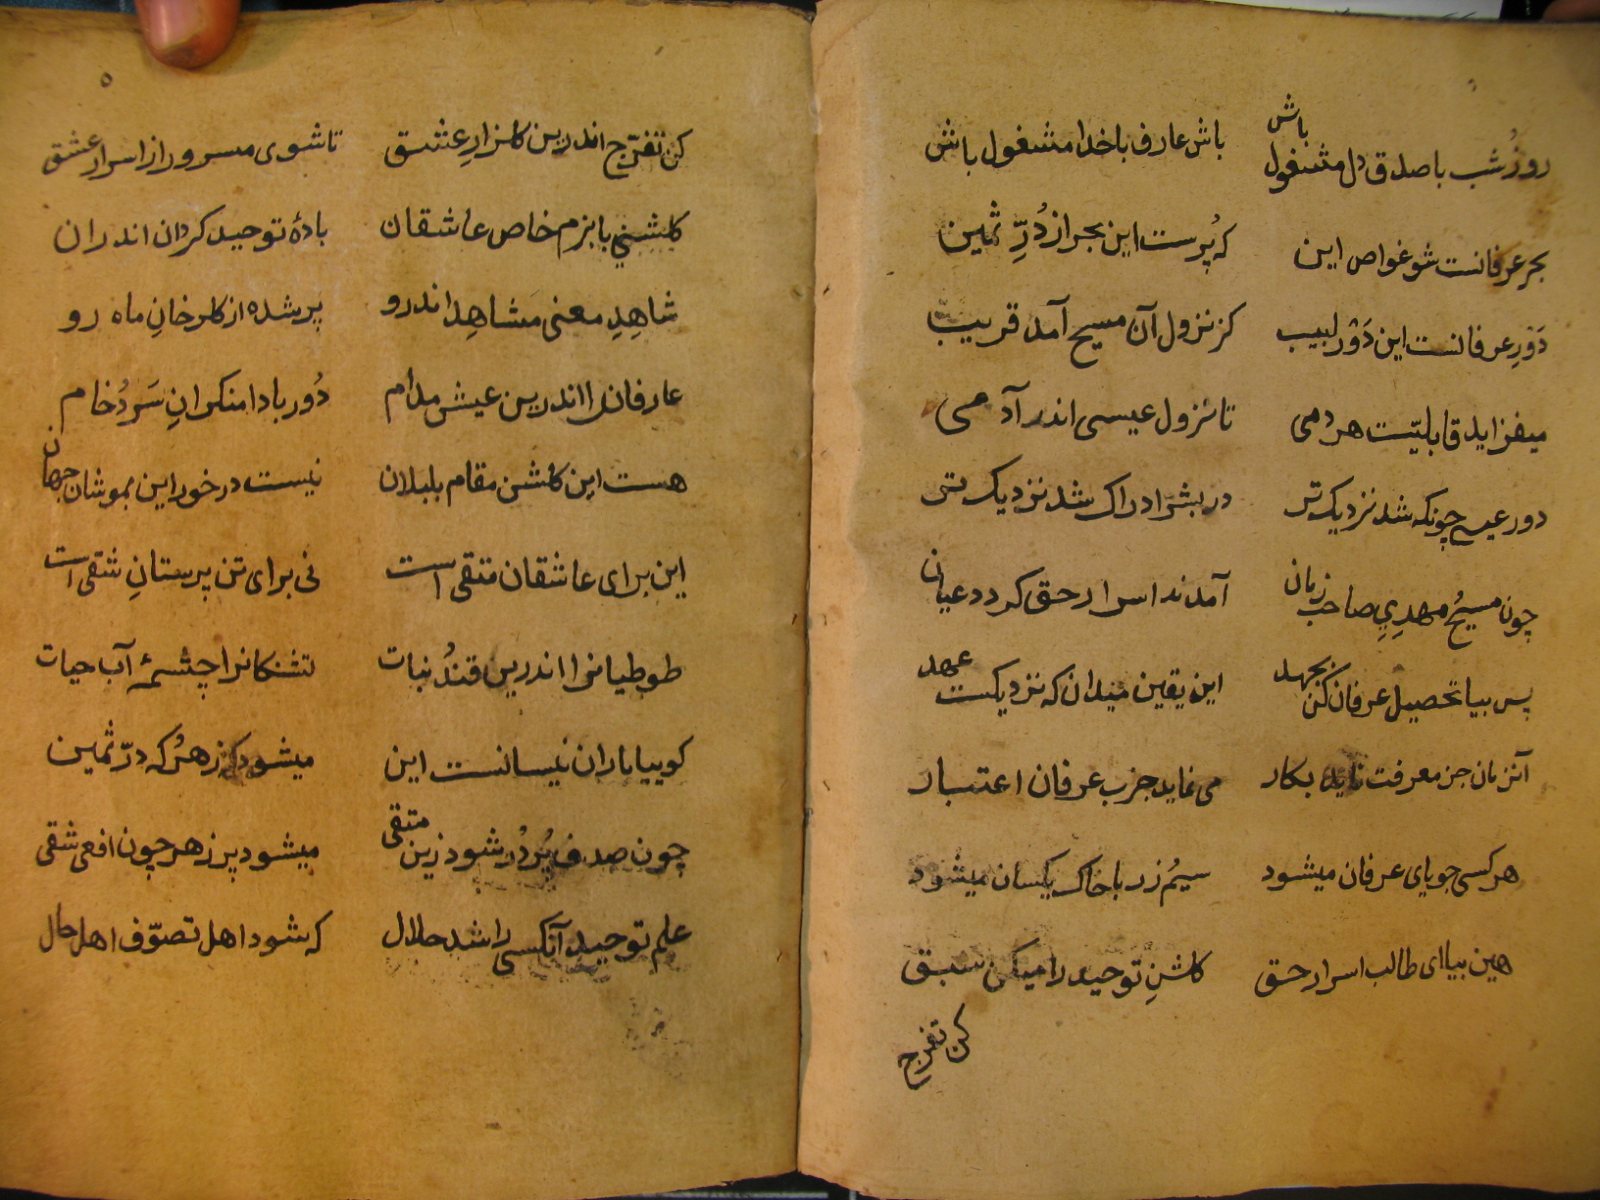 روزُ شب باصدق دل مشغول باش    باش عارف باخدا مشغول باش
بحر عرفانست شو غواص این    که پُرست این بحر از دُرِّ ثمین
دَوْرِ عرفانست این دَوْر لبیب    کز نزول آن مسیح آمد قریب
میفزاید قابلیّت هر دمی    تا نزول عیسی اندر آدمی
دور عیسی چونکه شد نزدیک تر    در بشر ادراک شد نزدیک تر
چون مسیحُ مهدیِ صاحب زمان    آمدند اسرار حق کردد عیان
پس بیا تحصیل عرفان کن بجهد    این یقین میدان که نزدیکست عهد
آنزمان جز معرفت ناید بکار    می نماید جزب عرفان اعتبار
هر کسی جویای عرفان میشود    سیمُ زر باخاک یکسان میشود
هین بیا ای طالب اسرار حق    کلشنِ توحید را میکن سبق
کن تفرج
۵
کن تفرّج اندرین کلزارِ عشق    تا شوی مسرور از اسرار عشق
کلشنی بابزم خاص عاشقان    بادهٔ توحید کردان اندران
شاهِدِ معنی مشاهِد اندرو    پر شده از کلرخانِ ماه رو
عارفانرا اندرین عیش مدام    دُور بادا منکرانِ سَردُ خام
هست این کلشن مقام بلبلان    نیست در خور این بموشان جهان
این برای عاشقان متقی است    نی برای تن پرستانِ شقی است
طوطیانرا اندرین قندُ نبات    تشنکانرا چشمهٔ آب حیات
کوییا باران نیسانست این    میشود زهرُ که درّ ثمین
چون صدف پُر دُر شود زین متقی    میشود پر زهر چون افعی شقی
علم توحید آنکسی را شد حلال    که شود اهل تصوّف اهل حال